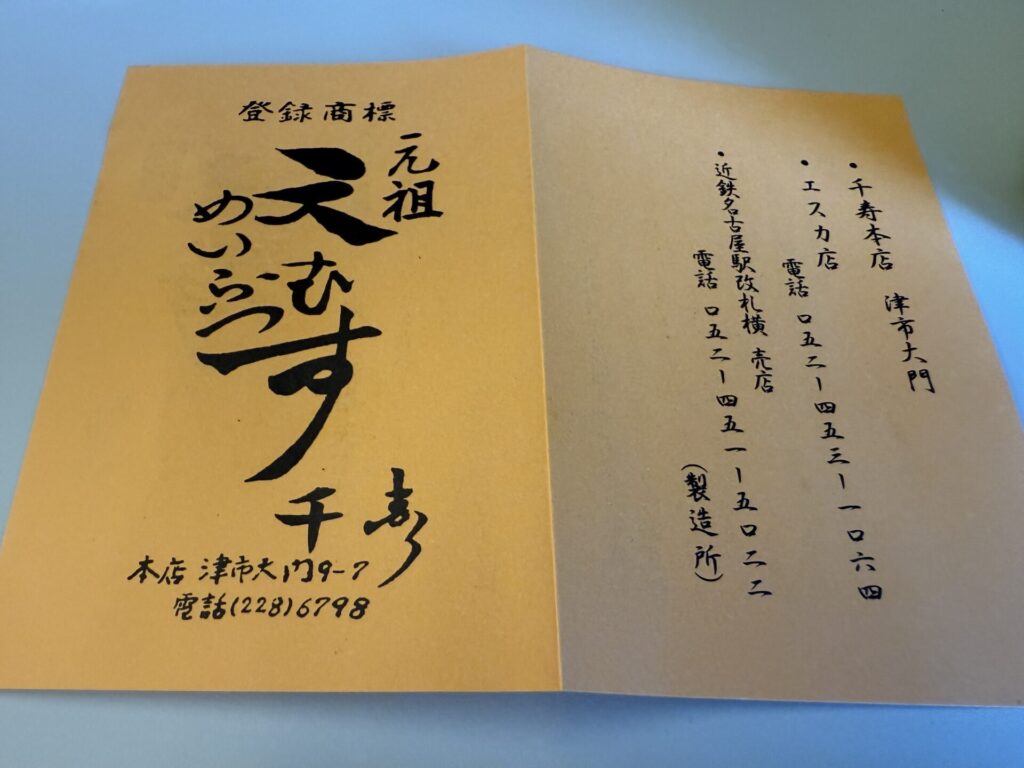 ・千寿本店 津市大門
・エスカ店
電話 〇五二ー四五三ー一〇六四
・近鉄名古屋駅改札横 売店
電話 〇五二ー四五一ー五〇二二
（製造所）
登録商標
元祖
天むす
めいぶつ
千寿
本店 津市大門9-7
電話(228)6798